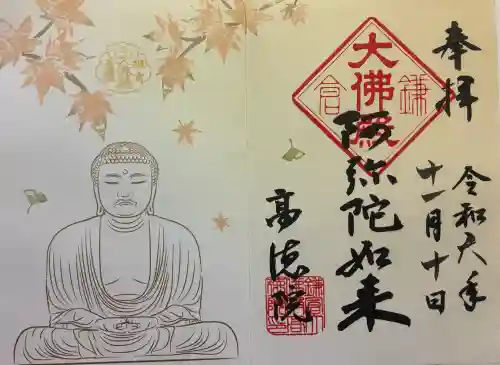 奉拝
大佛殿
鎌倉
阿弥陀如来
令和六年
十一月十日
高徳院